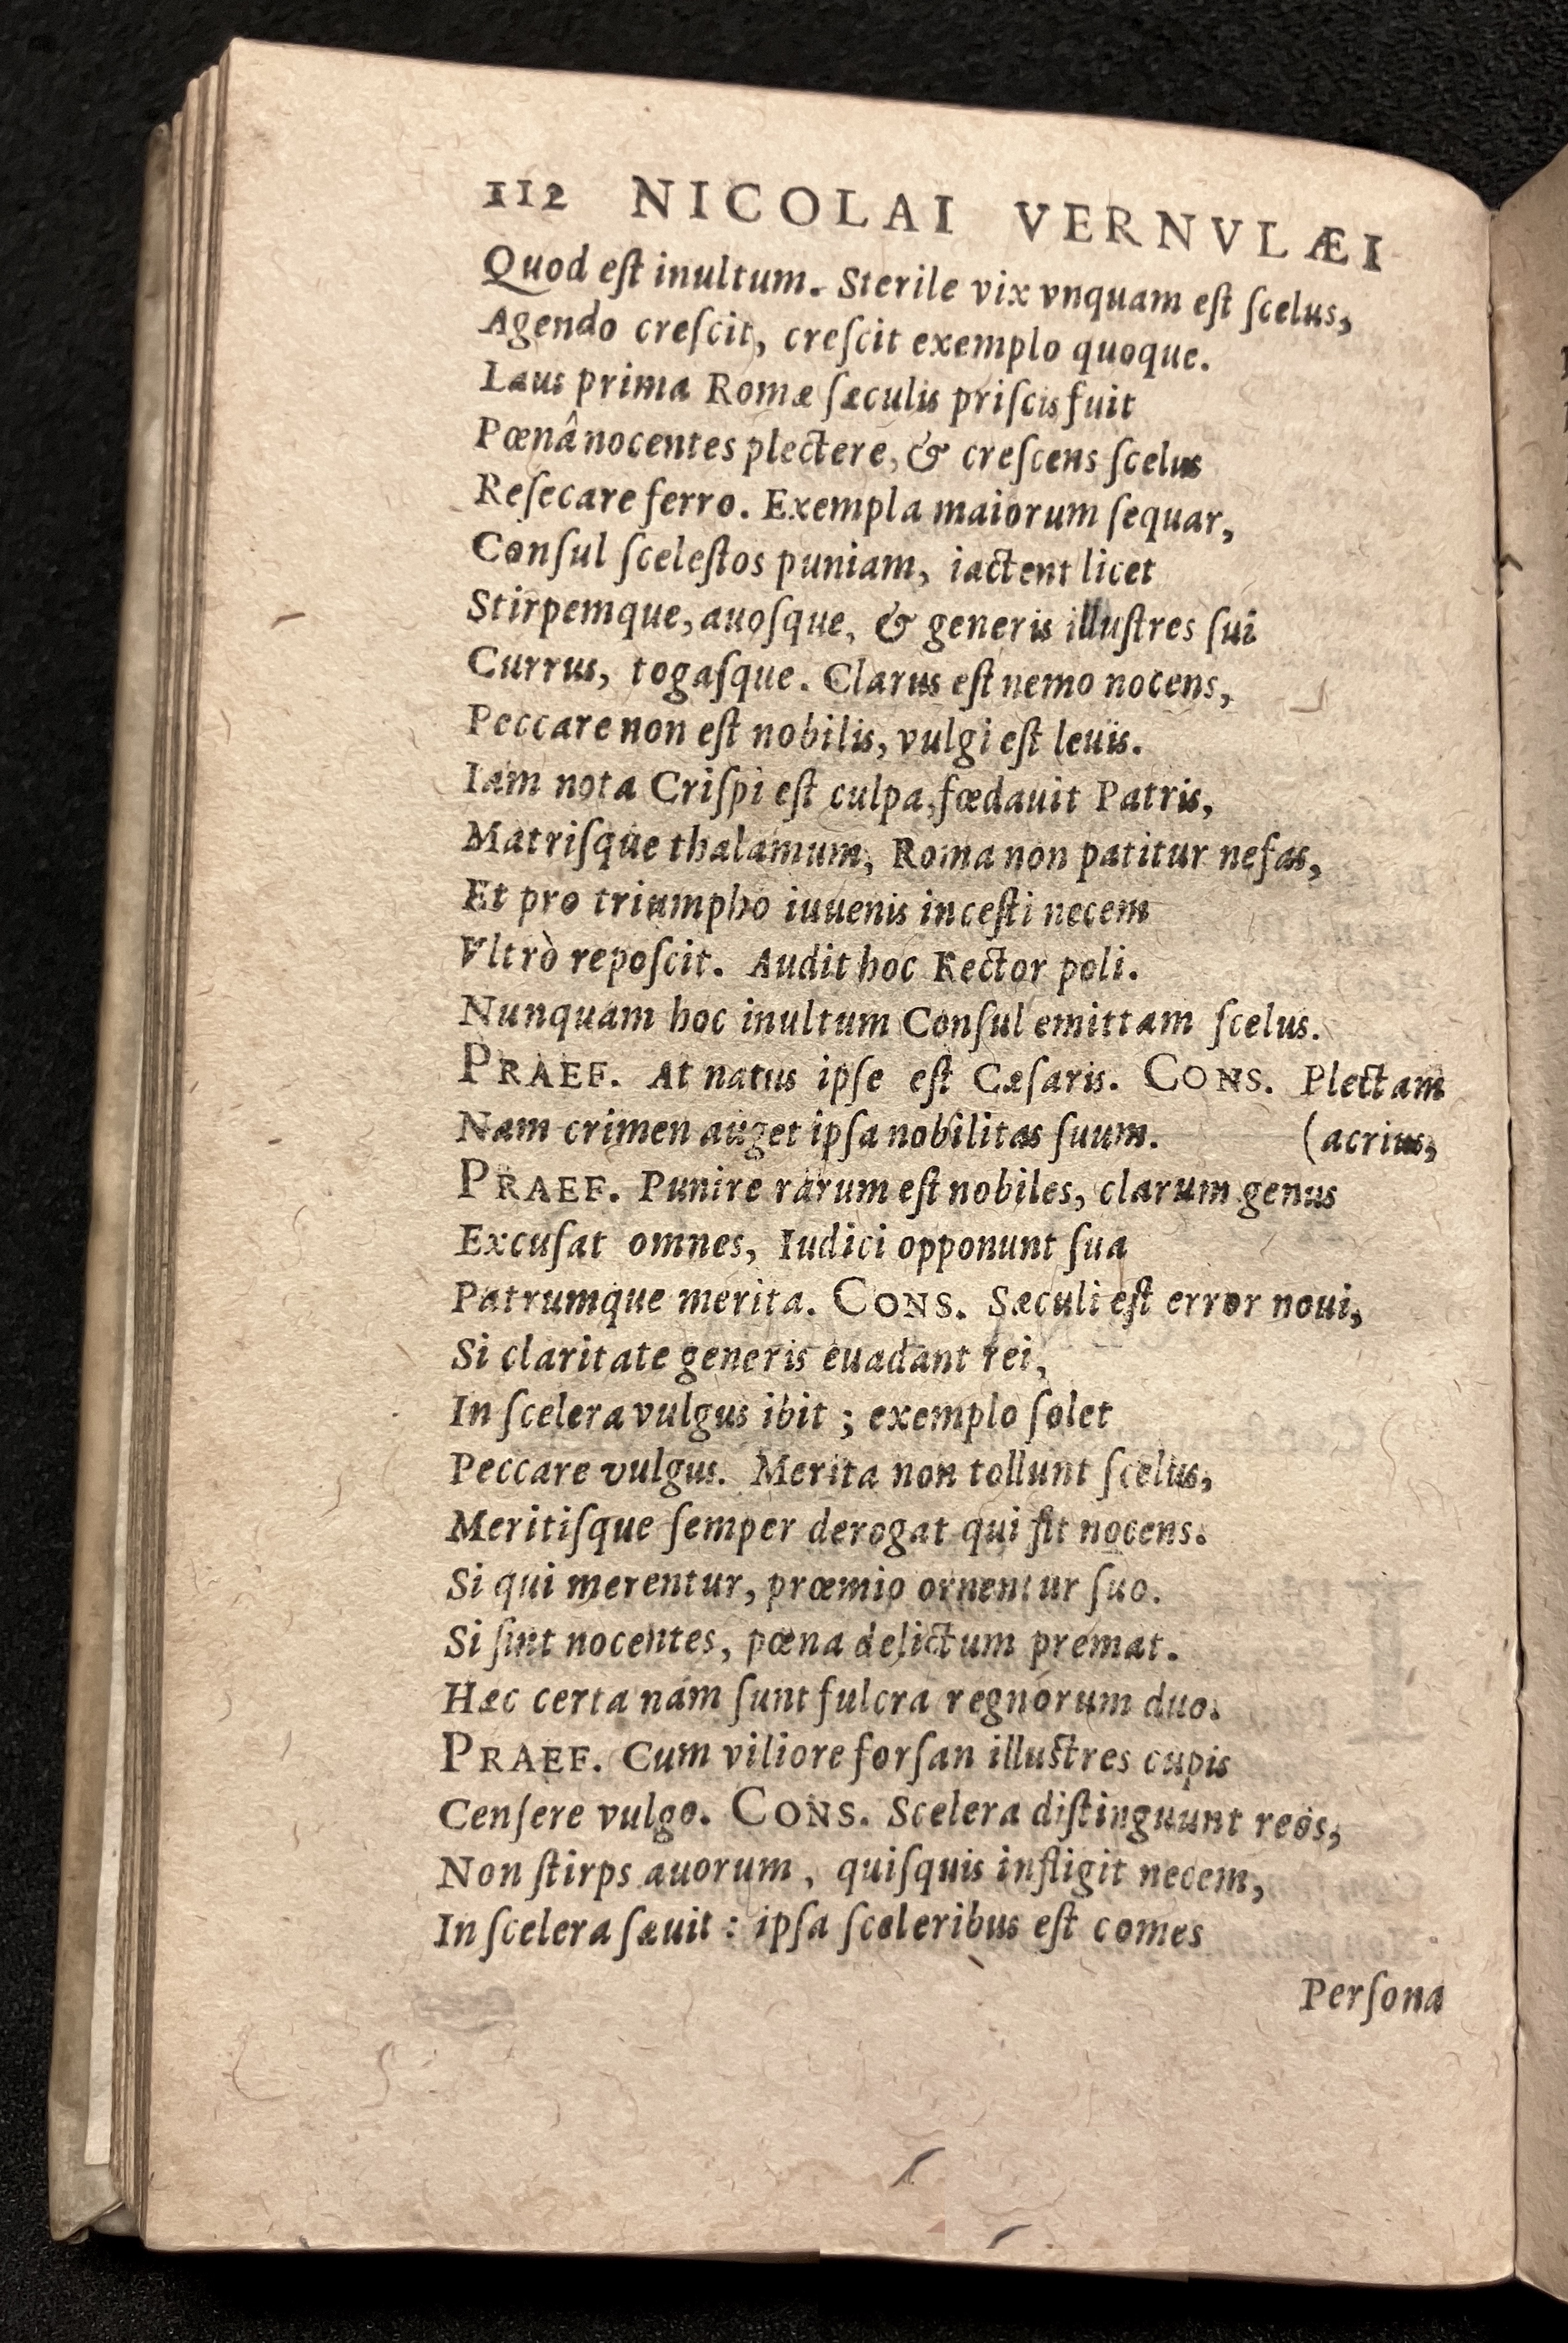 112 NICOLAI VERNVLÆI
Quod eſt inultum. Sterile vix vnquam eſt ſcelus,
Agendo creſcit, creſcit exemplo quoque.
Laus prima Romæ ſæculis priſcis fuit
Pœnâ nocentes plectere, & creſcens ſcelus
Reſecare ferro. Exempla maiorum ſequar,
Conſul ſceleſtos puniam, iactent licet
Stirpemque, auoſque, & generis illuſtres ſui
Currus, togaſque. Clarus eſt nemo nocens,
Peccare non eſt nobilis, vulgi eſt leuis.
Iam nota Criſpi eſt culpa, fœdauit Patris,
Matriſque thalamum, Roma non patitur nefas,
Et pro triumpho iuuenis inceſti necem
Vltrò repoſcit. Audit hoc Rector poli.
Nunquam hoc inultum Conſul emittam ſcelus.
PRAEF. At natus ipſe eſt Cæſaris. CONS. Plectam
Nam crimen auget ipſa nobilitas ſuum. (acrius,
PRAEF. Punire rarum eſt nobiles, clarum genus
Excuſat omnes, Iudici opponunt ſua
Patrumque merita. CONS. Sæculi eſt error noui,
Si claritate generis euadant rei,
In ſcelera vulgus ibit ; exemplo ſolet
Peccare vulgus. Merita non tollunt ſcelus,
Meritiſque ſemper derogat qui fit nocens.
Si qui merentur, prœmio ornentur ſuo.
Si ſint nocentes, pœna delictum premat.
Hæc certa nam ſunt fulcra regnorum duo.
PRAEF. Cum viliore forſan illuſtres cupis
Cenſere vulgo. CONS. Scelera diſtinguunt reos,
Non ſtirps auorum, quiſquis infligit necem,
In ſcelera ſæuit : ipſa ſceleribus eſt comes
Perſona